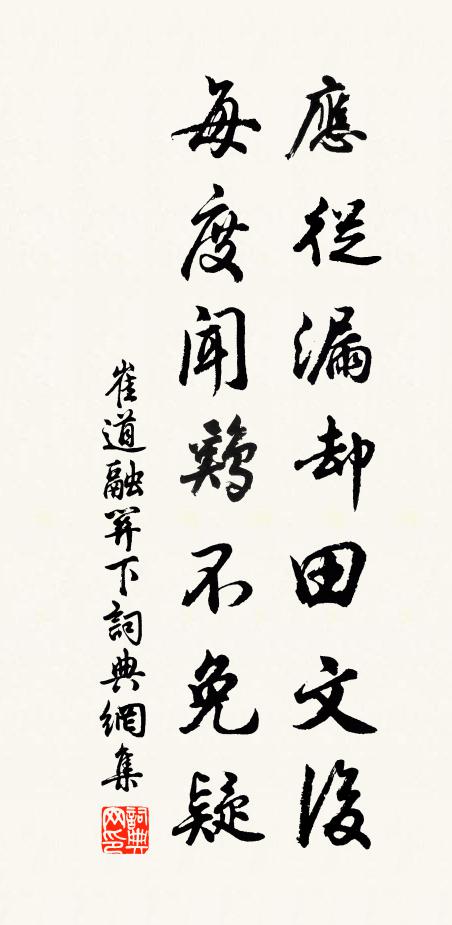 應從漏却田文後
每度聞鷄不免疑
崔道融關下詞典網集
詞典網印